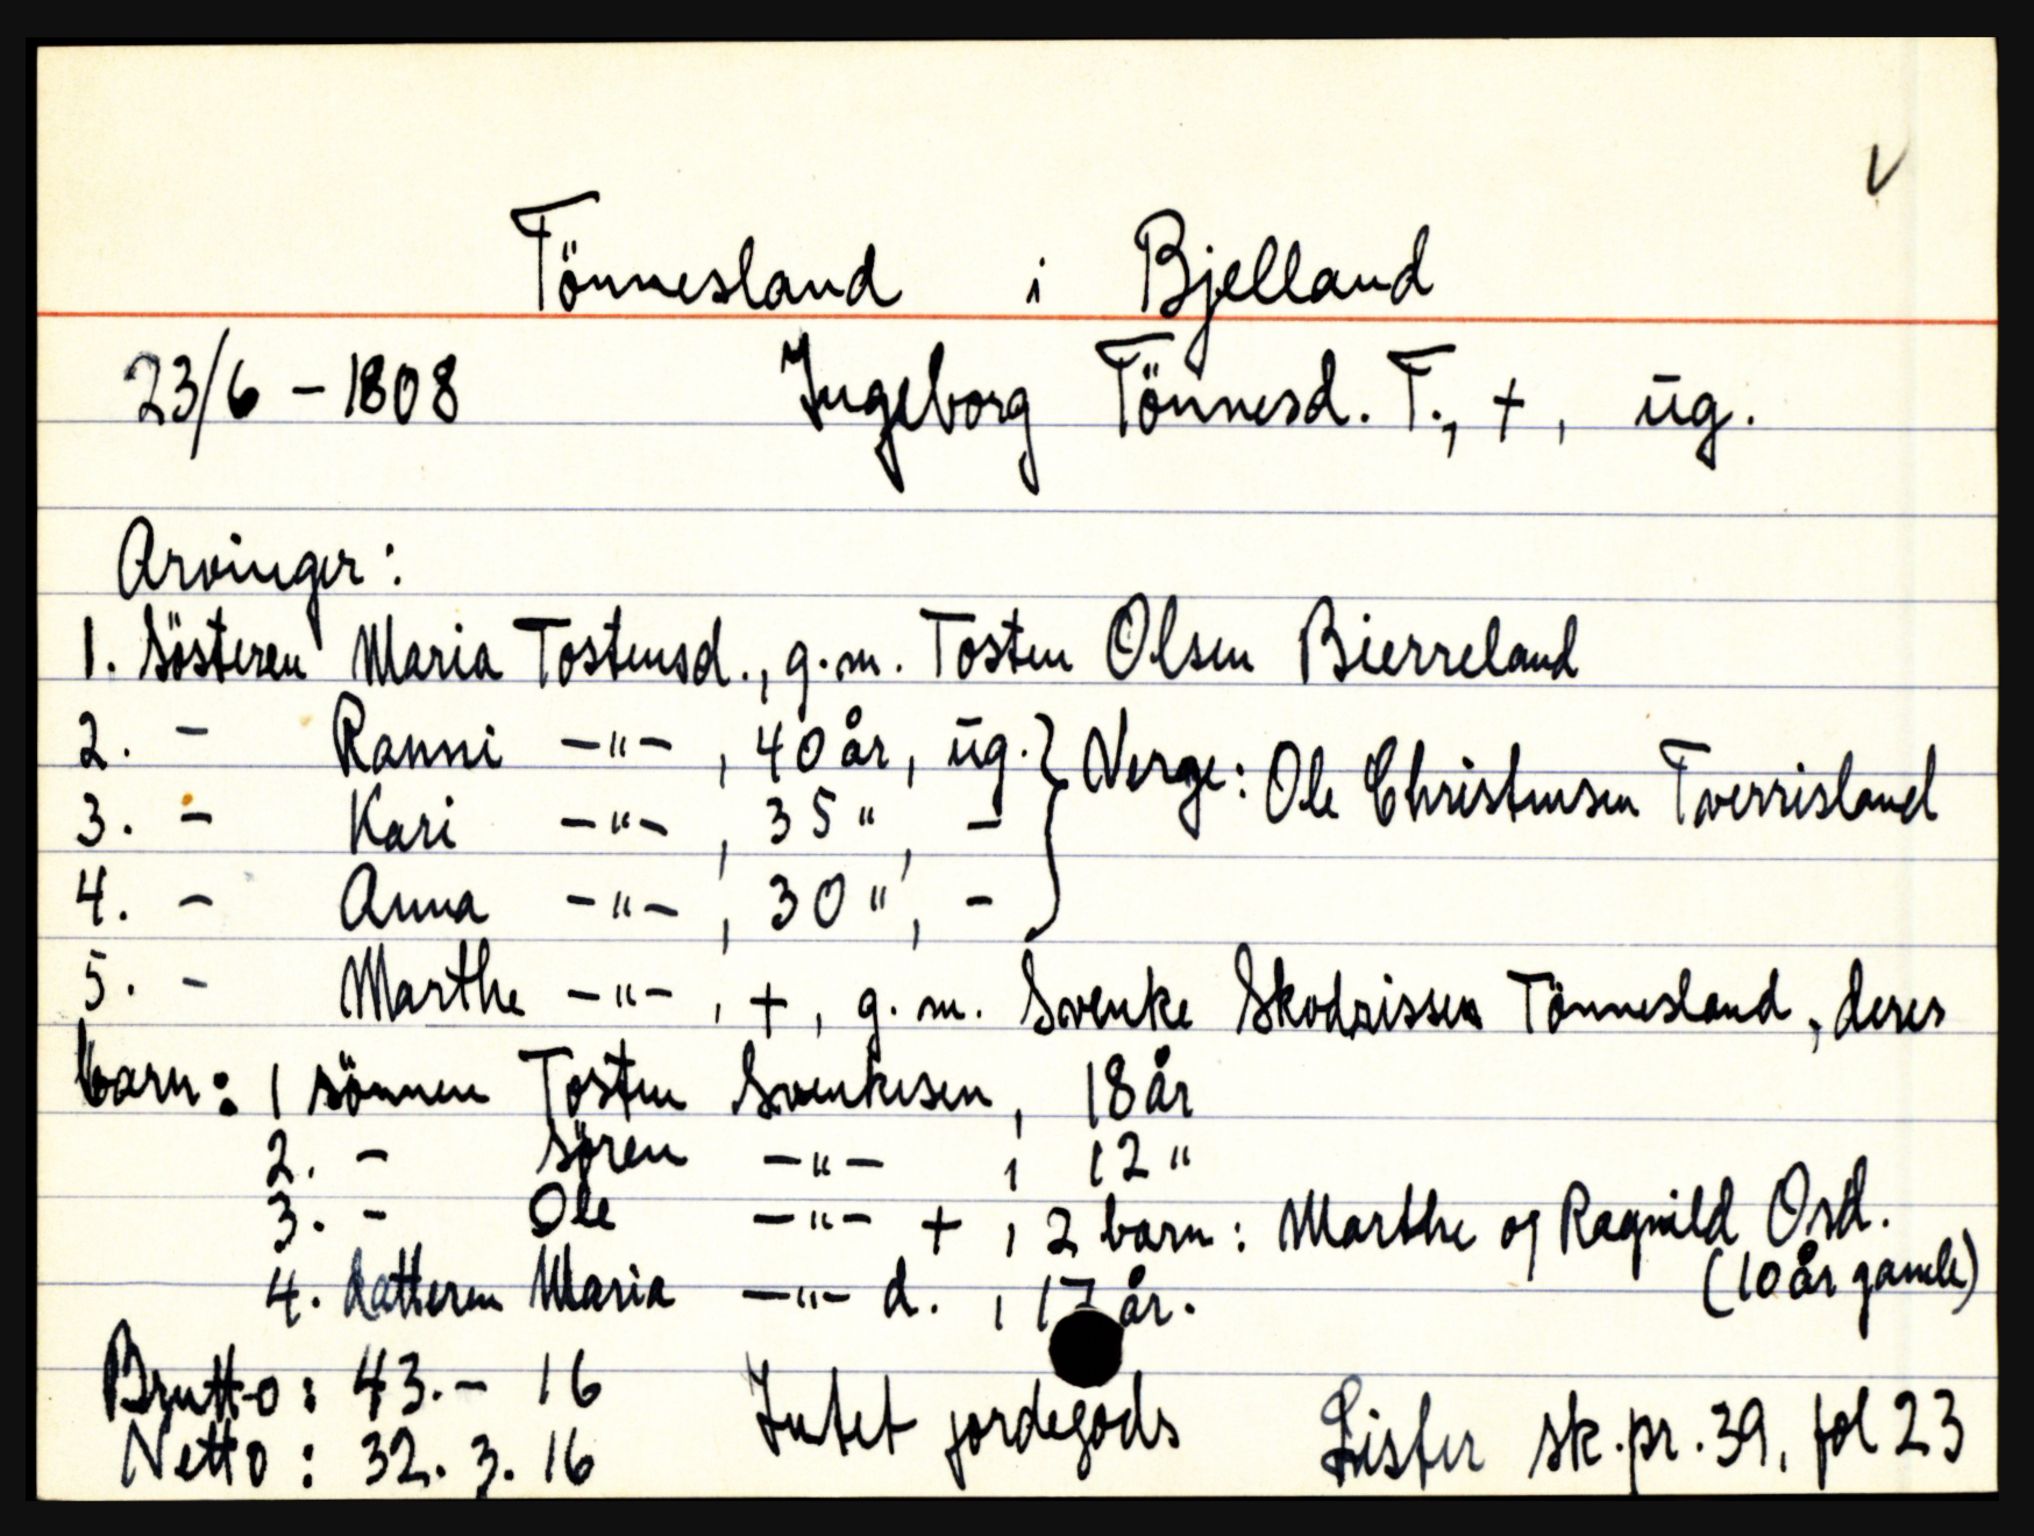 V
Tönnesland i Bjelland
23/6 - 1808 Ingeborg Tönnesd. T., +, ūg.
Arvinger:
1. Sösteren Maria Tostensd., g.m. Tosten Olsen Bierreland
2. - Ranni -"-, 40 år, ūg. } Verge: Ole Christensen Tverrisland
3. - Kari -"-, 35 ", -
4. - Anna -"-, 30 ", -
5. - Marthe -"-, +, g.m. Svenke Skodzissen Tönnesland, deres
barn: 1 sönnen Tosten Svenkesen, 18 år
2. - Sören -"-, 12 "
3. - Ole -"- +, 2 barn: Marthe og Ragnild Osd.
(10 år gamle)
4. datteren Maria -"- d., 17 år.
Brutto: 43.- 16 Intet jordegods Lister sk.pr. 39, fol 23
Netto: 32. 3. 16